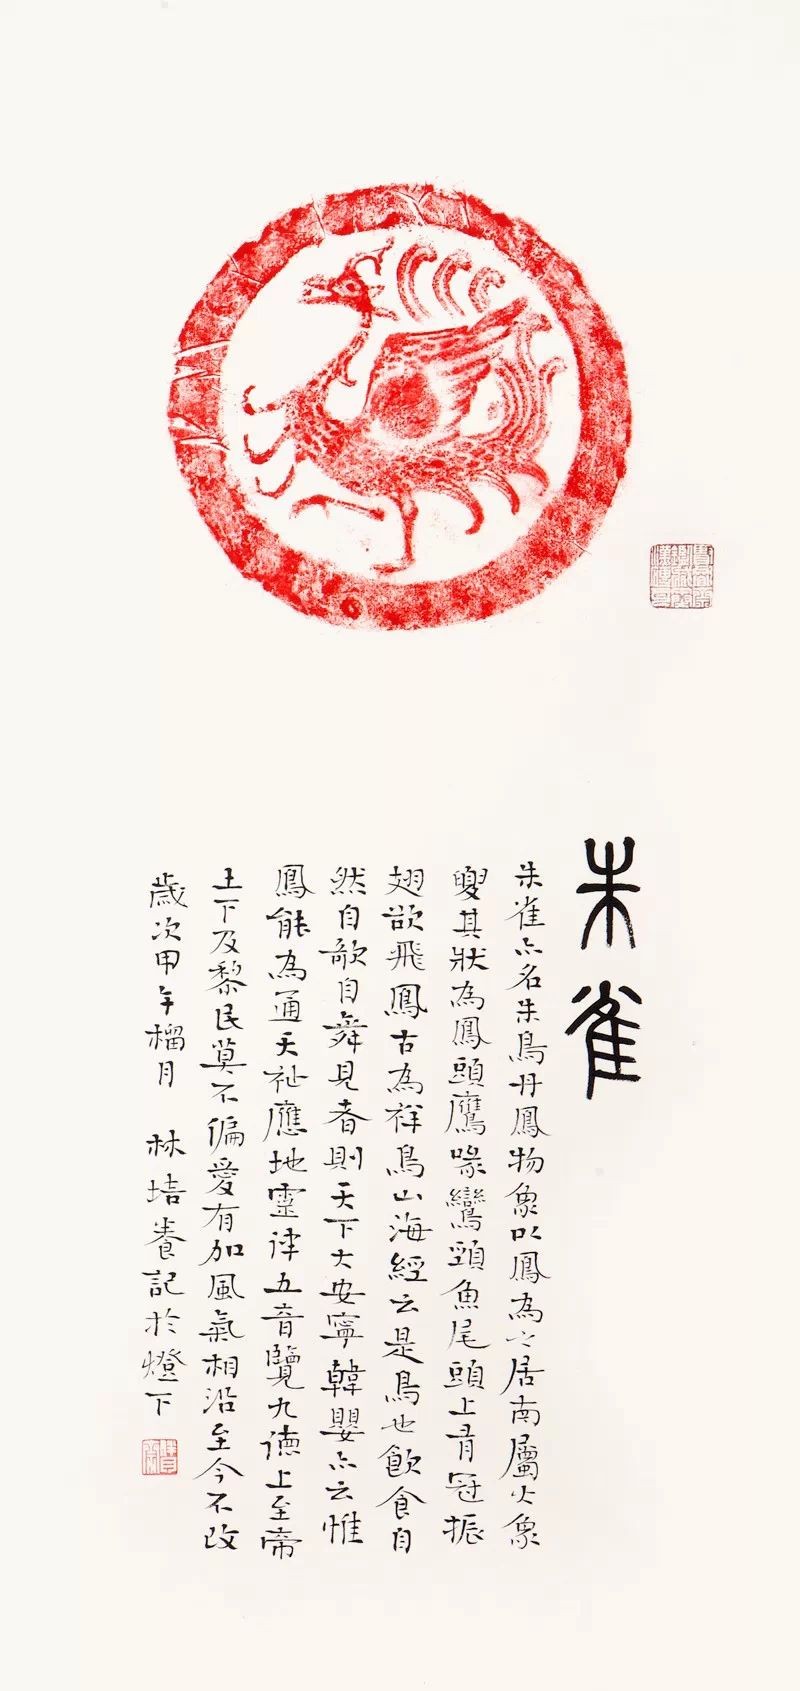 朱雀
朱雀亦名朱鳥丹鳳物象以鳳為之居南屬火象
其狀為鳳頭鷹喙鸞頸魚尾頭上有冠振
翅欲飛鳳古為祥鳥山海經云是鳥也飲食自
然自歌自舞見者則天下大安寧韓嬰亦云惟
鳳能為通天祉應地靈律五音覽九德上至帝
王下及黎民莫不偏愛有加風氣相沿至今不改
歲次甲午榴月 林培養記於燈下